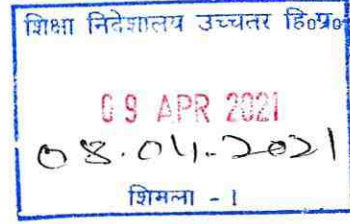 शिक्षा निदेशालय उच्चतर हि०प्र०
09 APR 2021
08.04.2021
शिमला - 1